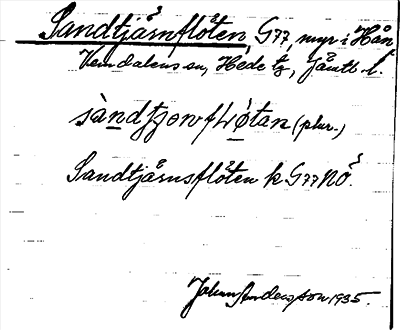 Sandtjärnflöten, G77, myr i Hån,
Vemdalens sn, Hede tg, Jämtl. l.
sàndtjɷnfLøtan (plur.)
Sandtjärnsflöten k G77NÖ.
Johan Anderson 1935.